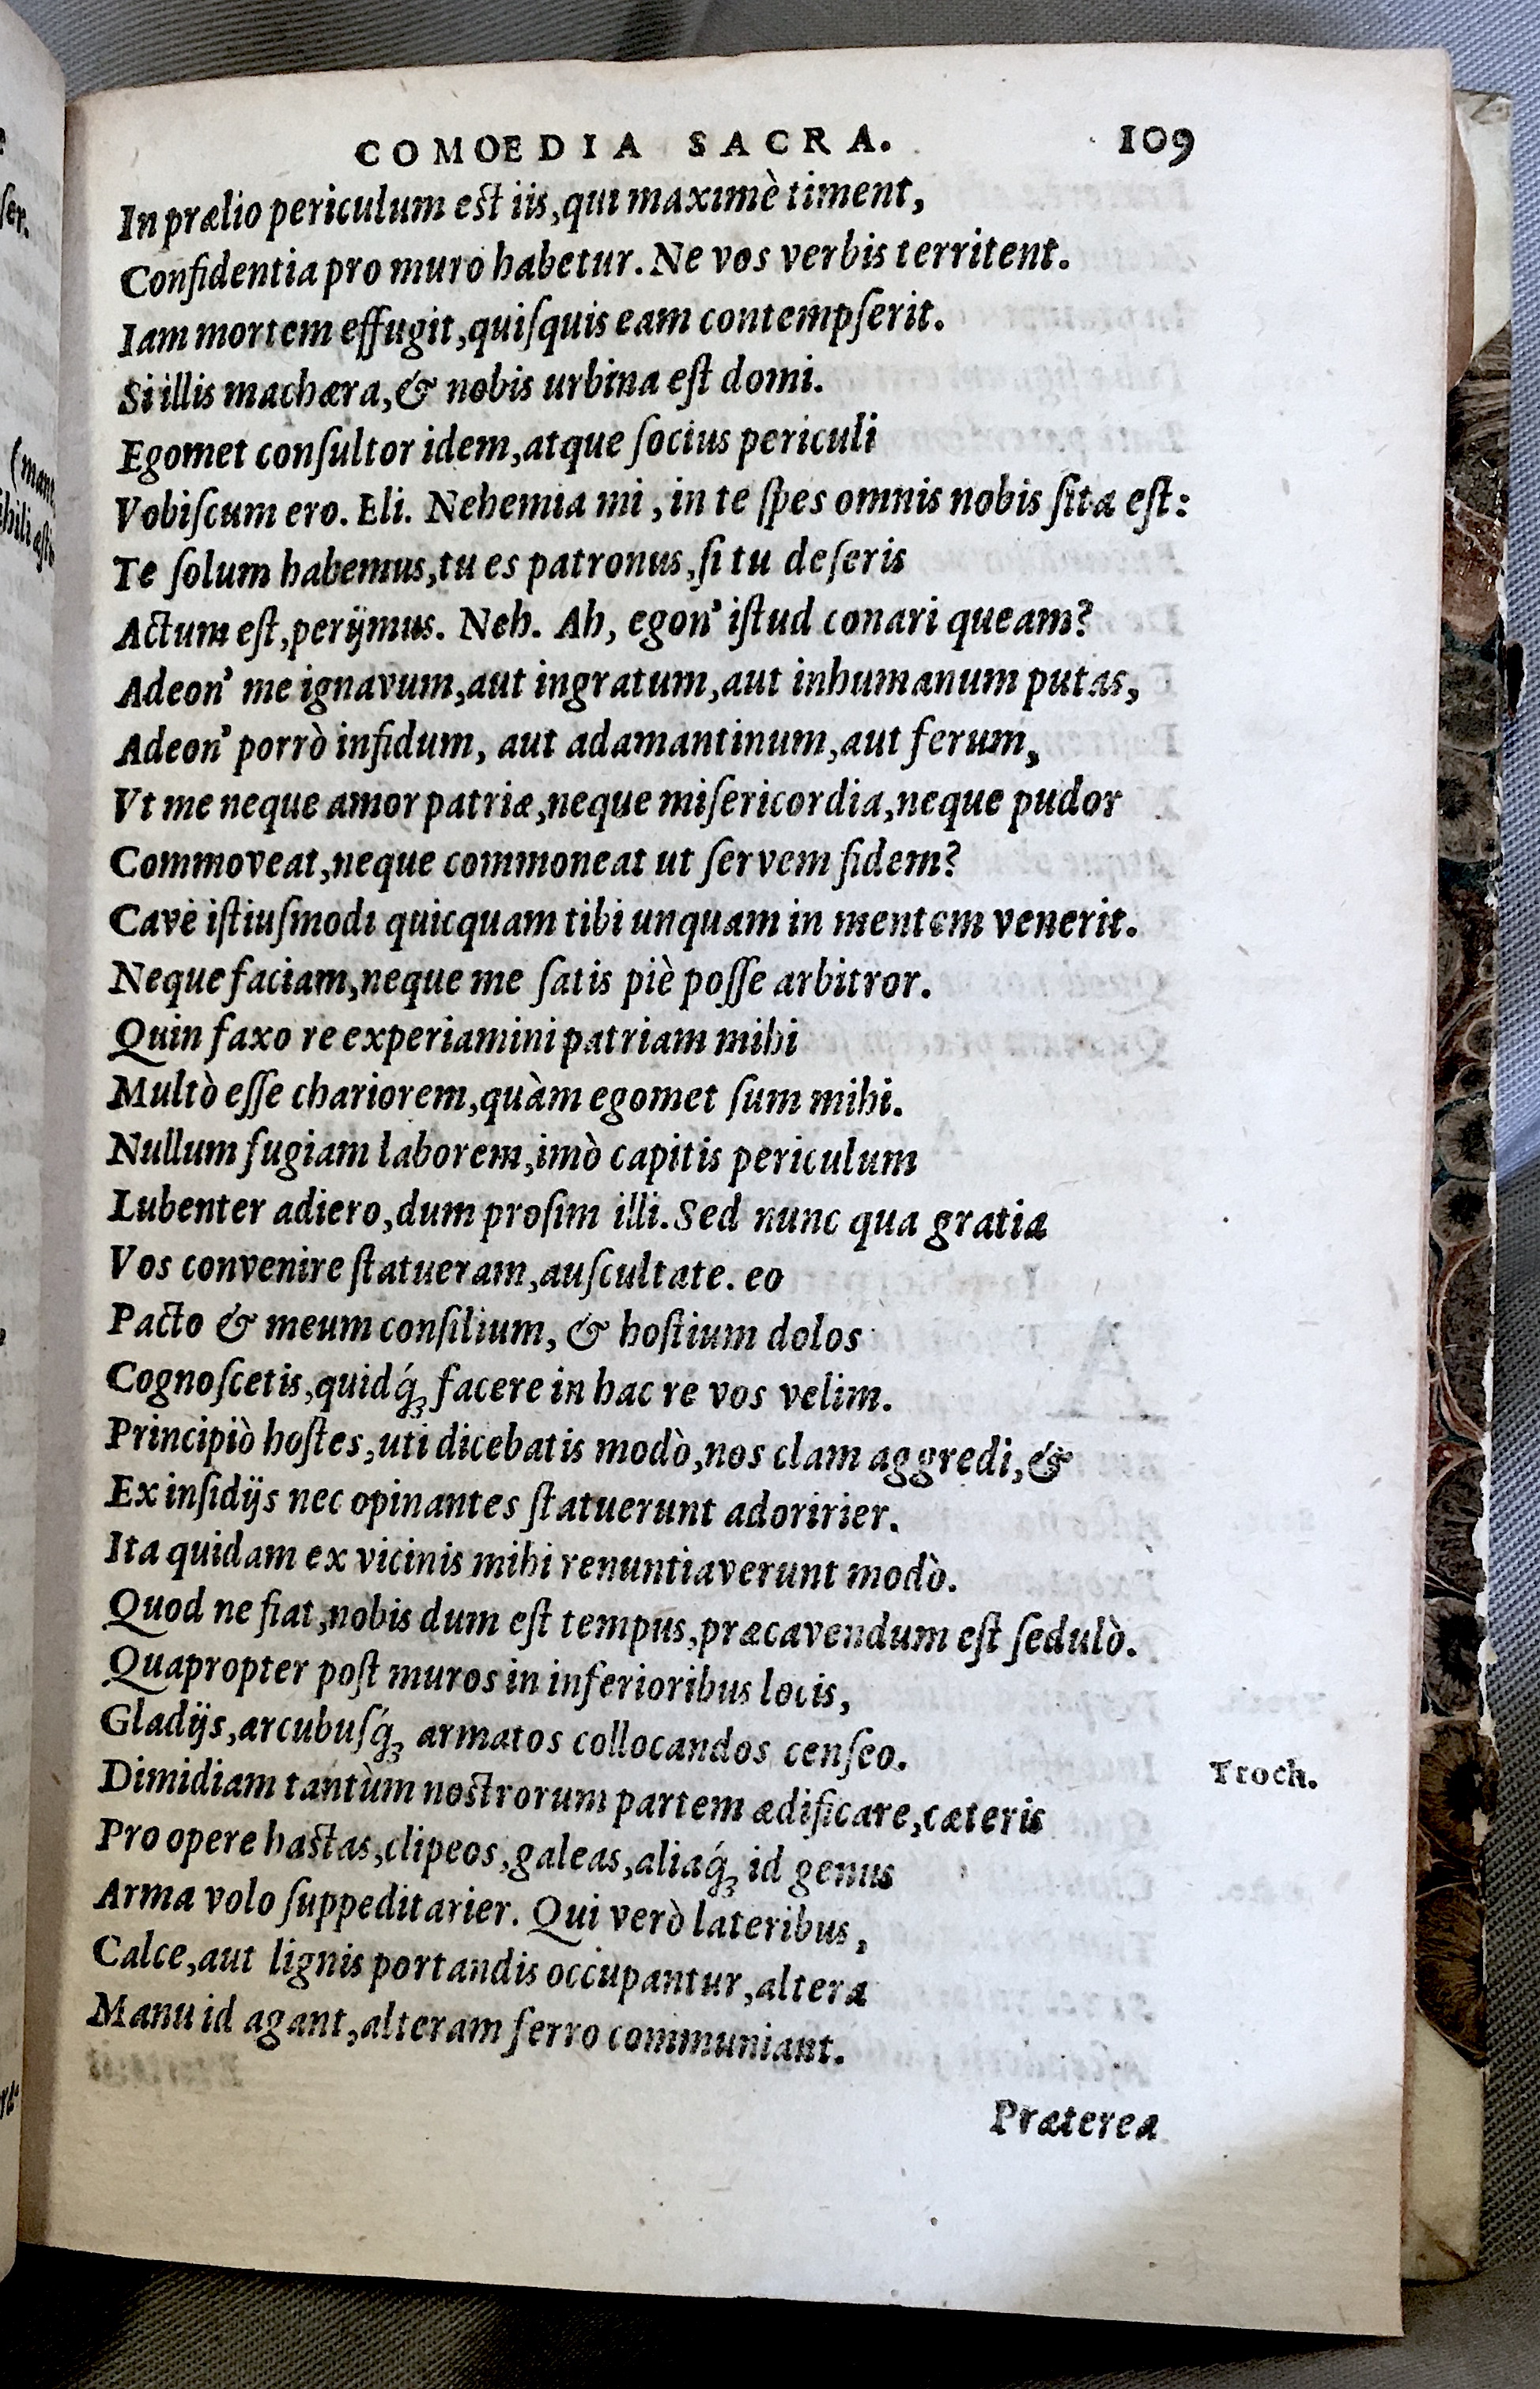 COMOEDIA SACRA. 109
In prælio periculum est iis, qui maximè timent,
Confidentia pro muro habetur. Ne vos verbis territent.
Iam mortem effugit, quiſquis eam contempſerit.
Si illis machæra, & nobis urbina eſt domi.
Egomet conſultor idem, atque ſocius periculi
Vobiſcum ero. Eli. Nehemia mi, in te ſpes omnis nobis ſita eſt:
Te ſolum habemus, tu es patronus, ſi tu deſeris
Actum eſt, perijmus. Neh. Ah, egon' iſtud conari queam?
Adeon' me ignavum, aut ingratum, aut inhumanum putas,
Adeon' porrò infidum, aut adamantinum, aut ferum,
Vt me neque amor patriæ, neque miſericordia, neque pudor
Commoveat, neque commoneat ut ſervem fidem?
Cave iſtiuſmodi quicquam tibi unquam in mentem venerit.
Neque faciam, neque me ſatis piè poſſe arbitror.
Quin faxo re experiamini patriam mihi
Multò eſſe chariorem, quàm egomet ſum mihi.
Nullum fugiam laborem, imò capitis periculum
Lubenter adiero, dum proſim illi. Sed nunc qua gratia
Vos convenire ſtatueram, auſcultate. eo
Pacto & meum conſilium, & hoſtium dolos
Cognoſcetis, quidq́ꝫ facere in hac re vos velim.
Principiò hoſtes, uti dicebatis modò, nos clam aggredi, &
Ex inſidijs nec opinantes ſtatuerunt adoririer.
Ita quidam ex vicinis mihi renuntiaverunt modò.
Quod ne fiat, nobis dum eſt tempus, præcavendum eſt ſedulò.
Quapropter poſt muros in inferioribus locis,
Gladijs, arcubuſq́ꝫ armatos collocandos cenſeo.
Troch.
Dimidiam tantùm nostrorum partem ædificare, cæteris
Pro opere hastas, clipeos, galeas, aliaq́ꝫ id genus
Arma volo ſuppeditarier. Qui verò lateribus,
Calce, aut lignis portandis occupantur, altera
Manu id agant, alteram ferro communiant.
Præterea